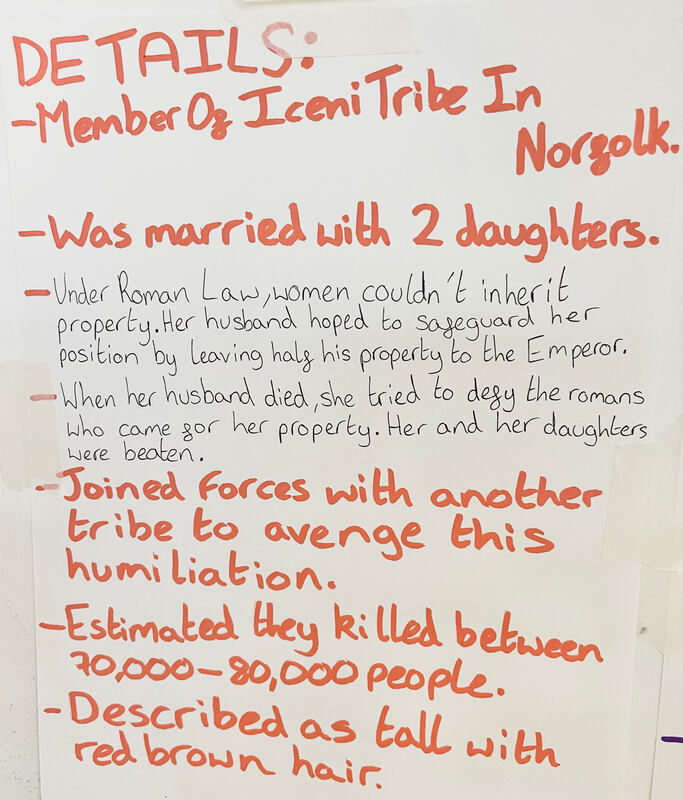 DETAILS:
-Member Of Iceni Tribe In
Norfolk.
-Was married with 2 daughters.
-Under Roman Law, women couldn't inherit
property. Her husband hoped to safeguard her
position by leaving half his property to the Emperor.
-When her husband died, she tried to defy the romans
who came for her property. Her and her daughters
were beaten.
-Joined forces with another
tribe to avenge this
humiliation.
-Estimated they killed between
70,000-80,000 people.
-Described as tall with
red brown hair.